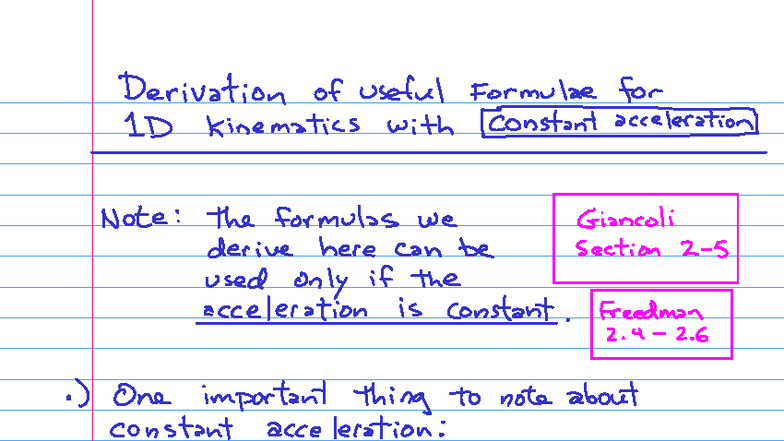 Derivation of useful Formulae for
1D Kinematics with constant acceleration
Note: The formulas we
derive here can be
used only if the
acceleration is constant.
Giancoli
Section 2-5
Freedman
2.4 - 2.6
.) One important thing to note about
constant acceleration: